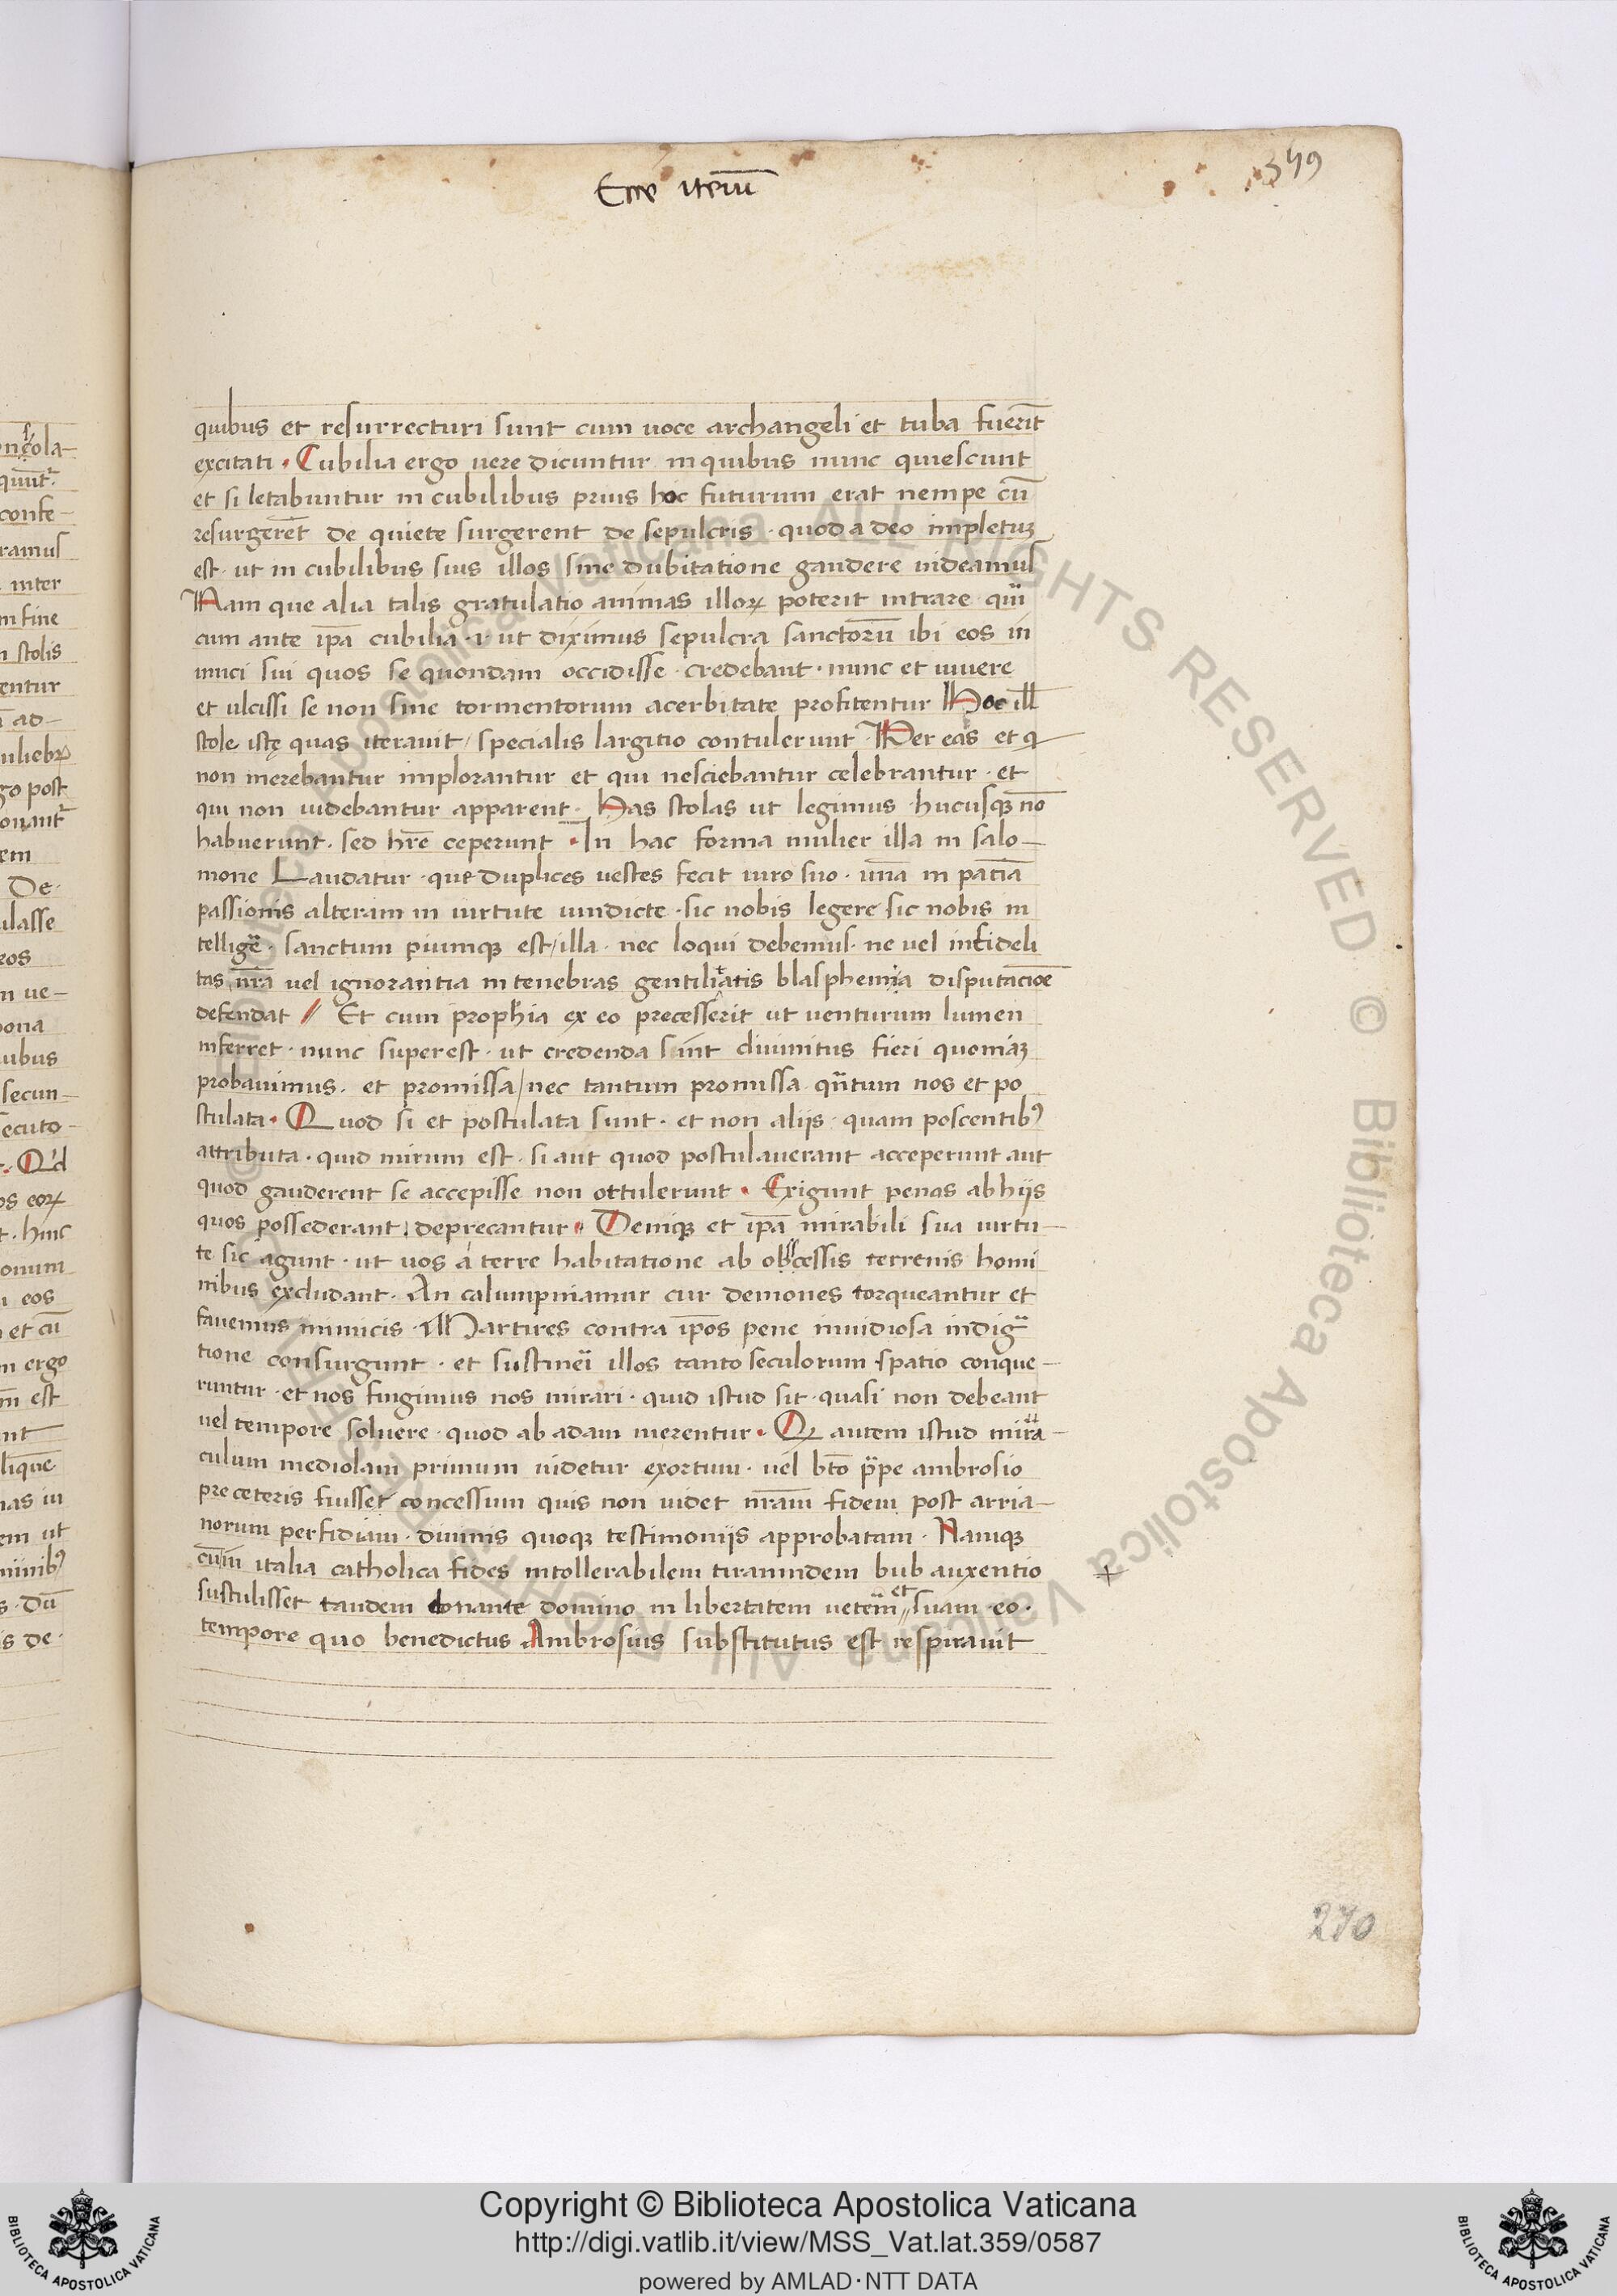 Ecce iterū
349
quibus et resurrecturi sunt cum uoce archangeli et tuba fuerīt
excitati · Cubilia ergo uere dicuntur in quibus nunc quiescunt
et si letabuntur in cubilibus prius hoc futurum erat nempe cū
resurgerēt de quiete surgerent de sepulcris · quod a deo impletuȝ
est · ut in cubilibus suis illos sine dubitatione gaudere uideamus
Nam que alia talis gratulatio animas illoꝝ poterit intrare
cum ante ip̄a cubilia · i · ut diximus sepulcra sanctorū ibi eos in
imici sui quos se quondam occidisse · credebant · nunc et uiuere
et ulcissi se non sine tormentorum acerbitate profitentur Hoc ill̄
stole istę quas iterauit / specialis largitio contulerunt · Per eas et q
non merebantur implorantur et qui nesciebantur celebrantur · et
qui non uidebantur apparent · Has stolas ut legimus hucusqꝫ nō
habuerunt · sed hr̄e ceperunt · In hac forma mulier illa in salo-
mone Laudatur · que duplices uestes fecit uiro suo · unā in paciā
passionis alteram in uirtute uindicte · sic nobis legere sic nobis in
telligeᷓ · sanctum piumqꝫ est / illa · nec loqui debemus · ne uel infideli
tas nr̄a uel ignorantia in tenebras gentilitatis blasphemia disputacioē
defendat // Et cum proph̄ia ex eo precesserit ut uenturum lumen
inferret · nunc superest · ut credenda sint diuinitus fieri quoniaȝ
probauimus · et promissa / nec tantum promissa qn̄tum nos et po
stulata · Quod si et postulata sunt · et non alijs · quam poscentibꝰ
attributa · quid mirum est · si aut quod postulauerant acceperunt aut
quod gauderent se accepisse non ottulerunt · Exigunt penas ab hijs
quos possederant deprecantur · Deniqꝫ et ip̄a mirabili sua uirtu-
te sic agunt · ut uos a terre habitatione ab obcessis terrenis homi
nibus excludant · An calumpniamur cur demones torqueantur et
fauemus inimicis · Martires contra ip̄os pene inuidiosa indigᷓ
tione consurgunt · et sustineī illos tanto seculorum spatio conque-
runtur · et nos fingimus nos mirari · quid istud sit · quasi non debeant
uel tempore soluere · quod ab adam merentur · Q autem istud mira-
culum mediolani primum uidetur exortum · uel bt̄o pp̄e ambrosio
pre ceteris fuisset concessum quis non uidet nr̄am fidem post arria-
norum perfidiam · diuinis quoqꝫ testimonijs approbatam · Namqꝫ
cum italia catholica fides intollerabilem tirannidem bub auxentio
sustulisset tandem donante domino in libertatem uetem̄ et suam · eo ·
tempore quo benedictus Ambrosius substitutus est respirauit
270
Copyright © Biblioteca Apostolica Vaticana
http://digi.vatlib.it/view/MSS_Vat.lat.359/0587
powered by AMLAD·NTT DATA
BIBLIOTECA APOSTOLICA VATICANA
BIBLIOTECA APOSTOLICA VATICANA